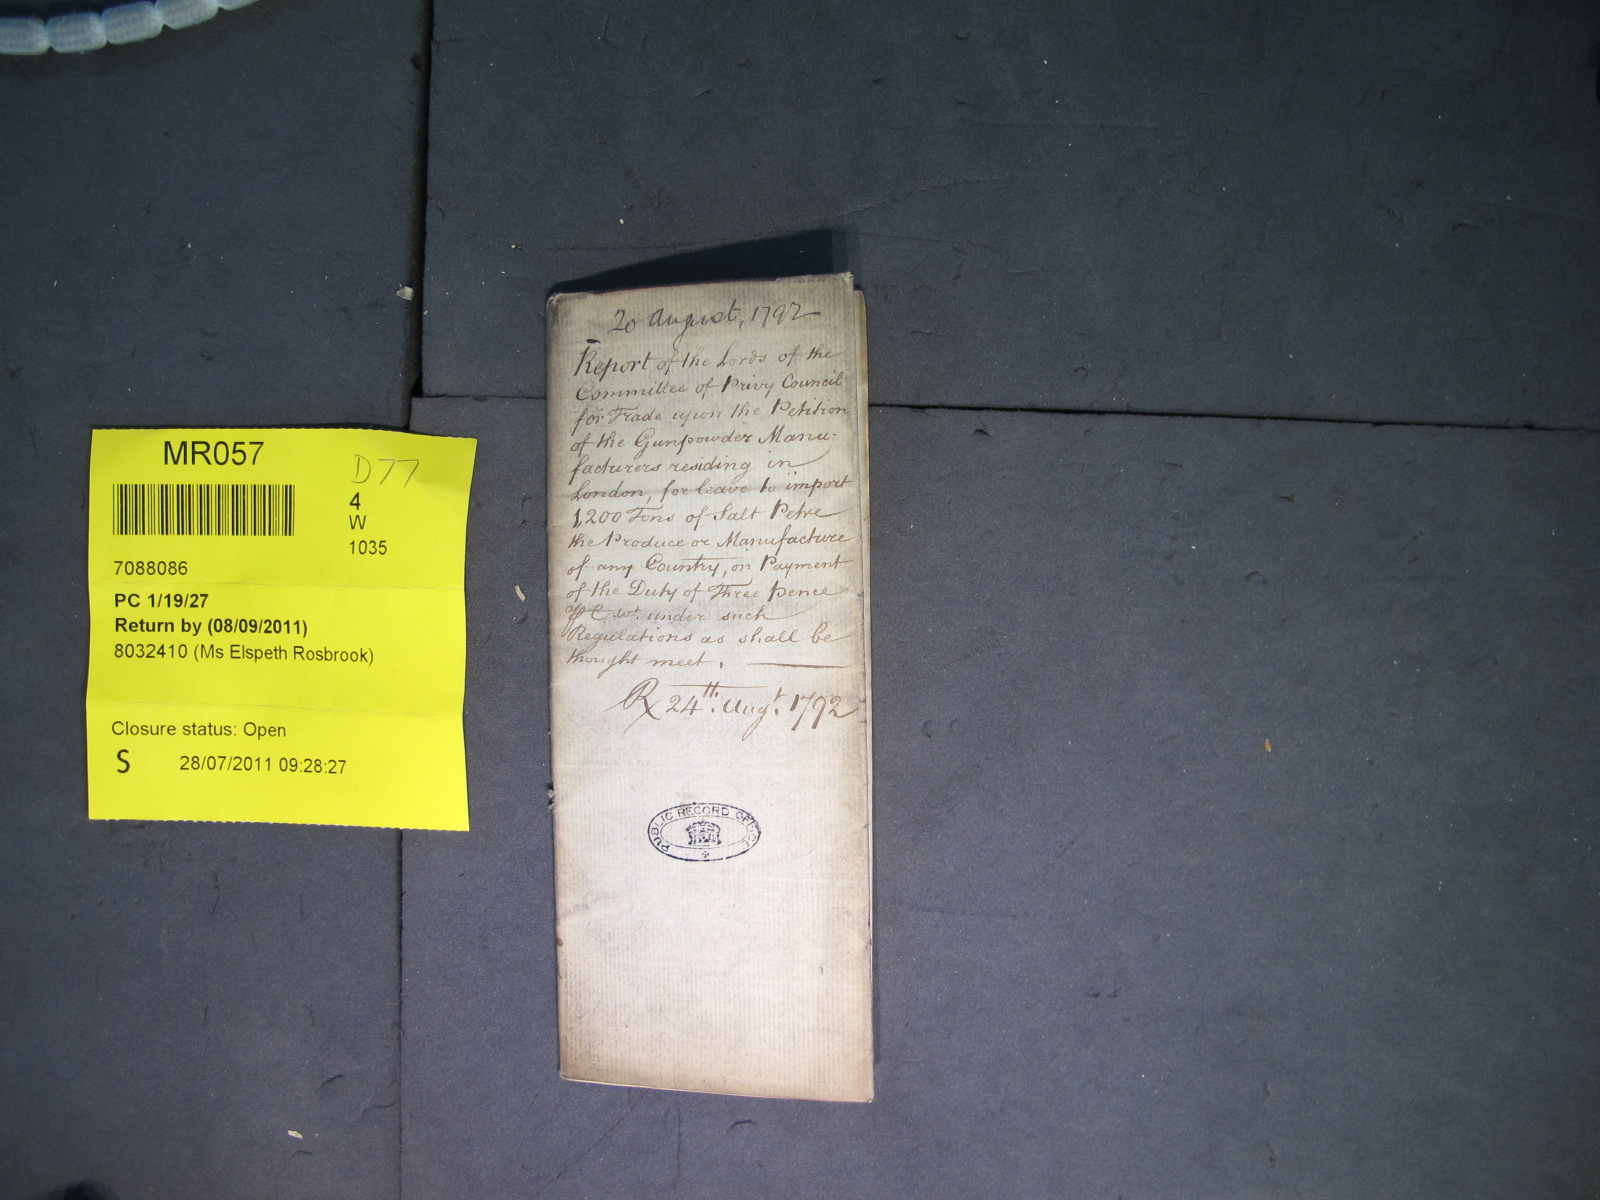 MR057
D77
4
W
1035
7088086
PC 1/19/27
Return by (08/09/2011)
8032410 (Ms Elspeth Rosbrook)
Closure status: Open
S 28/07/2011 09:28:27
20 August, 1792
Report of the Lords of the
Committee of Privy Council
for Trade upon the Petition
of the Gunpowder Manu-
facturers residing in
London, for leave to import
1,200 Tons of Salt Petre
the Produce or Manufacture
of any Country, on Payment
of the Duty of Three pence
℔ C wt. under such
Regulations as shall be
thought meet.
Rx 24th. Augt. 1792
PUBLIC RECORD OFFICE